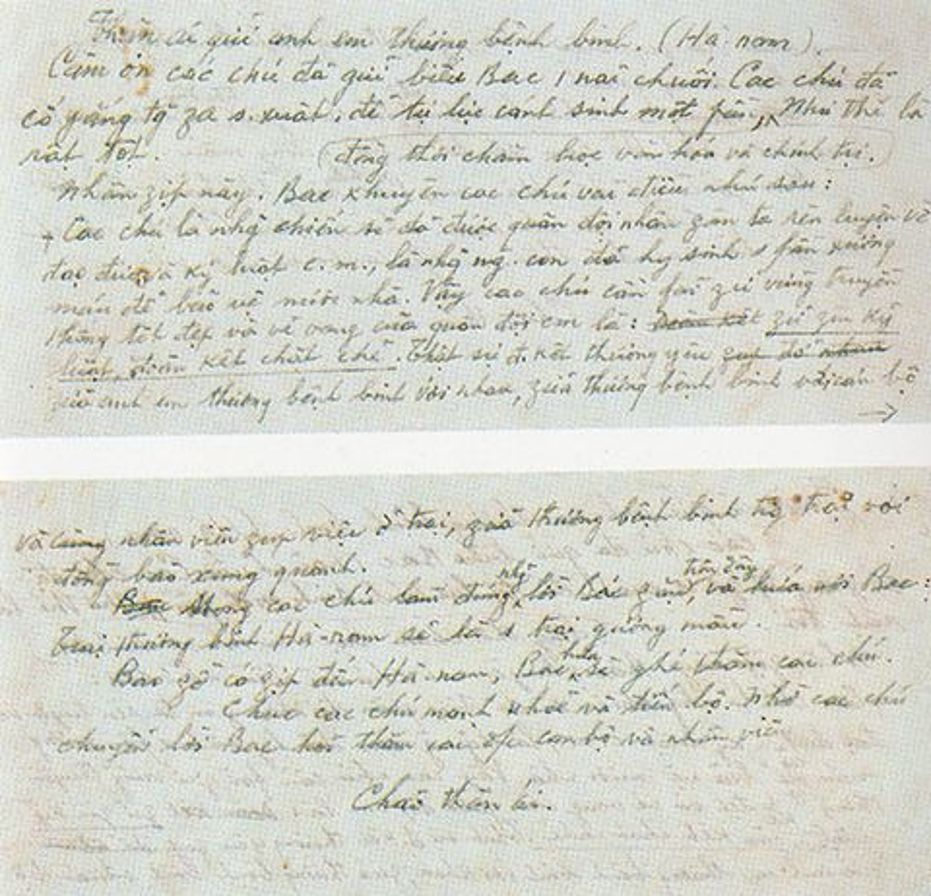 Thân ái gửi anh em thương bệnh binh. (Hà-nam).
Cảm ơn các chú đã gửi biếu Bác 1 nải chuối. Các chú đã
cố gắng tg za s.xuất, để tự lực canh sinh một fần, Như thế là
rất tốt. (đồng thời chăm học văn hóa và chính trị.)
Nhân zịp này, Bác khuyên các chú vài điều như sau:
+ Các chú là nhg chiến sĩ đã được quân đội nhân zân ta rèn luyện về
đạo đức và kỷ luật c.m., là nhg ng. con đã hy sinh 1 fần xương
máu để bảo vệ nước nhà. Vậy các chú cần fải zữ vững truyền
thống tốt đẹp và vẻ vang của quân đội em là: đoàn kết zữ zìn kỷ
luật, đoàn kết chặt chẽ. Thật sự đ. kết thương yêu
zữa anh em thương bệnh binh với nhau, zữa thương bệnh binh với cán bộ
→
và nhân viên zúp việc ở trại, zữa thương bệnh binh trg trại với
đồng bào xung quanh.
nhg trên đây
Bác mong các chú làm đúng lời Bác zặn, và hứa với Bác:
Trại thương binh Hà-nam sẽ là 1 trại gương mẫu.
hứa
Bao zờ có zịp đến Hà-nam, Bác sẽ ghé thăm các chú.
Chúc các chú mạnh khoẻ và tiến bộ. Nhờ các chú
chuyển lời Bác hỏi thăm các cán bộ và nhân viên
Chào thân ái.